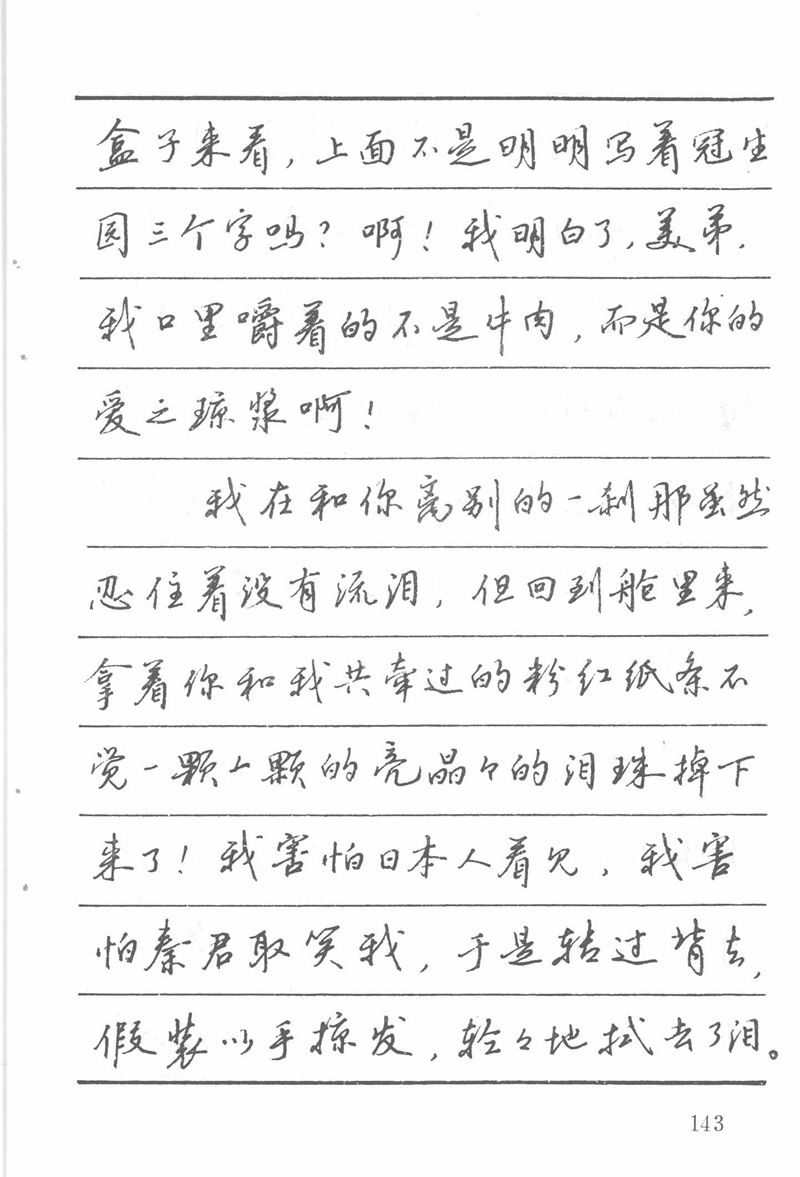 盒子来看，上面不是明明写着冠生
园三个字吗？啊！我明白了，美弟，
我口里嚼着的不是牛肉，而是你的
爱之琼浆啊！
我在和你离别的一刹那虽然
忍住着没有流泪，但回到舱里来，
拿着你和我共牵过的粉红纸条不
觉一颗一颗的亮晶々的泪珠掉下
来了！我害怕日本人看见，我害
怕秦君取笑我，于是转过背去，
假装以手掠发，轻々地拭去了泪。
143